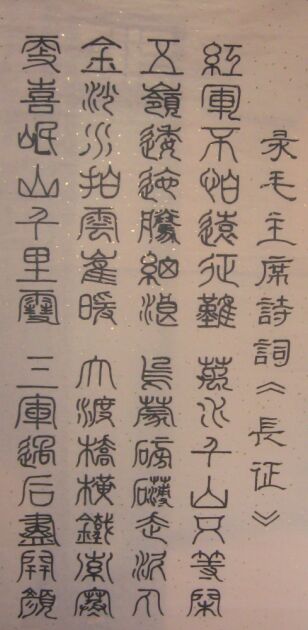 录毛主席詩詞《長征》
紅軍不怕遠征難 萬水千山只等閑
五嶺逶迤騰細浪 烏蒙磅礴走泥丸
金沙水拍雲崖暖 大渡橋橫鐵索寒
更喜岷山千里雪 三軍過后盡開顏